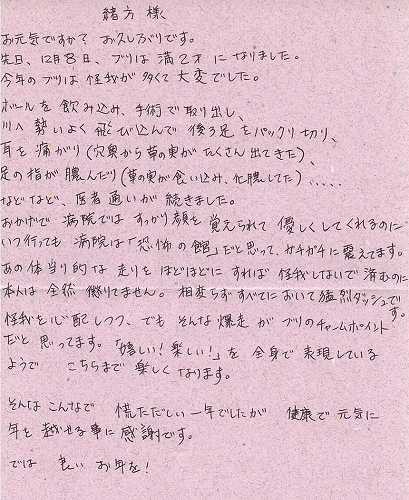 緒方 様
お元気ですか？ お久しぶりです。
先日、12月8日、ブリは満2才になりました。
今年のブリは怪我が多くて大変でした。
ボールを飲み込み、手術で取り出し、
川へ勢いよく飛び込んで後ろ足をパックリ切り、
耳を痛がり（穴奥から草の実がたくさん出てきた）、
足の指が膿んだり（草の実が食い込み、化膿してた）.....
などなど、医者通いが続きました。
おかげで病院ではすっかり顔を覚えられて優しくしてくれるのに
いつ行っても病院は「恐怖の館」だと思って、ガチガチに震えてます。
あの体当り的な走りをほどほどにすれば怪我しないで済むのに
本人は全然懲りてません。相変らずすべてにおいて猛烈ダッシュです。
怪我を心配しつつ、でもそんな爆走がブリのチャームポイント
だと思ってます。「嬉しい！楽しい！」を全身で表現している
ようで こちらまで楽しくなります。
そんなこんなで 慌ただしい一年でしたが 健康で元気に
年を越せる事に感謝です。
では 良いお年を！